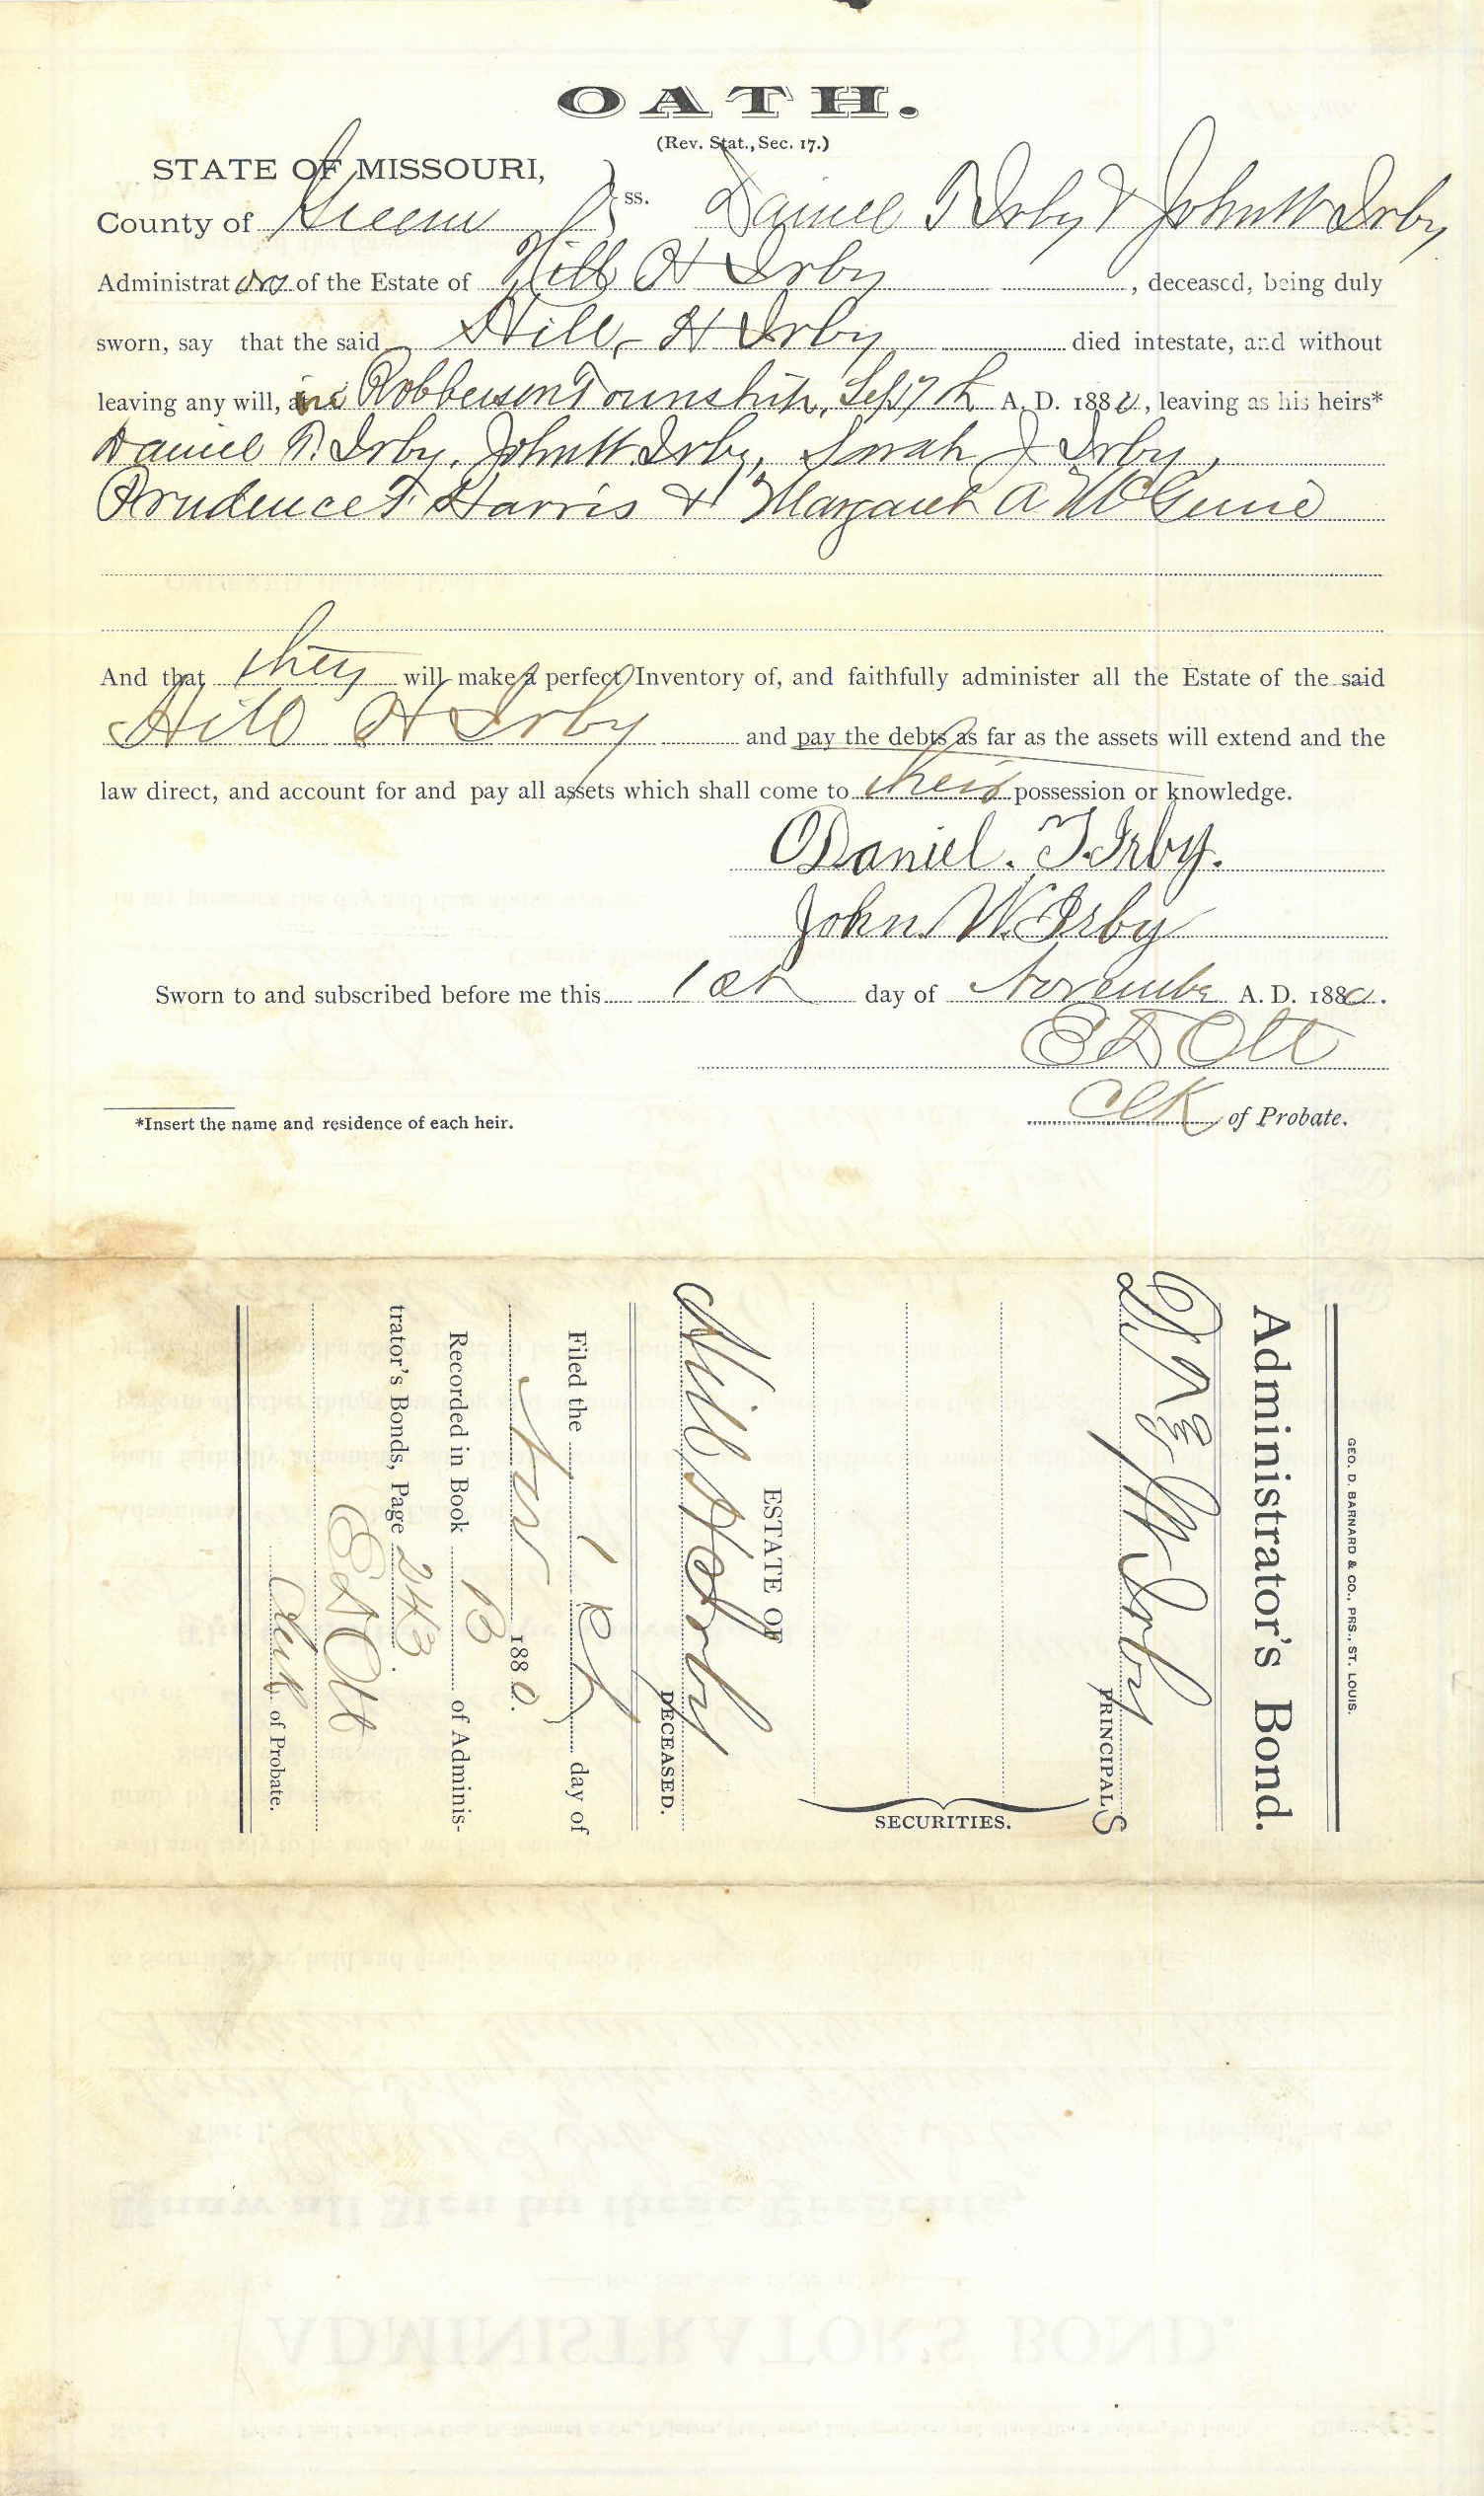 OATH.
(Rev. Stat., Sec. 17.)
STATE OF MISSOURI,
County of Greene ss. Daniel T Irby & John W Irby
Administrators of the Estate of Hill H Irby, deceased, being duly
sworn, say that the said Hill H Irby died intestate, and without
leaving any will, in Robberson Township, Sep 7th A. D. 1880, leaving as his heirs*
Daniel T. Irby, John W. Irby, Sarah J Irby,
Prudence F Harris & Margaret A McGuire
And that they will make a perfect Inventory of, and faithfully administer all the Estate of the said
Hill H Irby and pay the debts as far as the assets will extend and the
law direct, and account for and pay all assets which shall come to their possession or knowledge.
Daniel. T. Irby.
John. W. Irby
Sworn to and subscribed before me this 1st day of November A. D. 1880.
E D Ott
Clk of Probate.
*Insert the name and residence of each heir.
GEO. D. BARNARD & CO., PRS., ST. LOUIS.
Administrator's Bond.
D. T. & J W Irby
PRINCIPALS
SECURITIES.
ESTATE OF
Hill H Irby
DECEASED.
Filed the 1st day of
Nov 1880.
Recorded in Book B of Adminis-
trator's Bonds, Page 243.
E D Ott
Clerk of Probate.